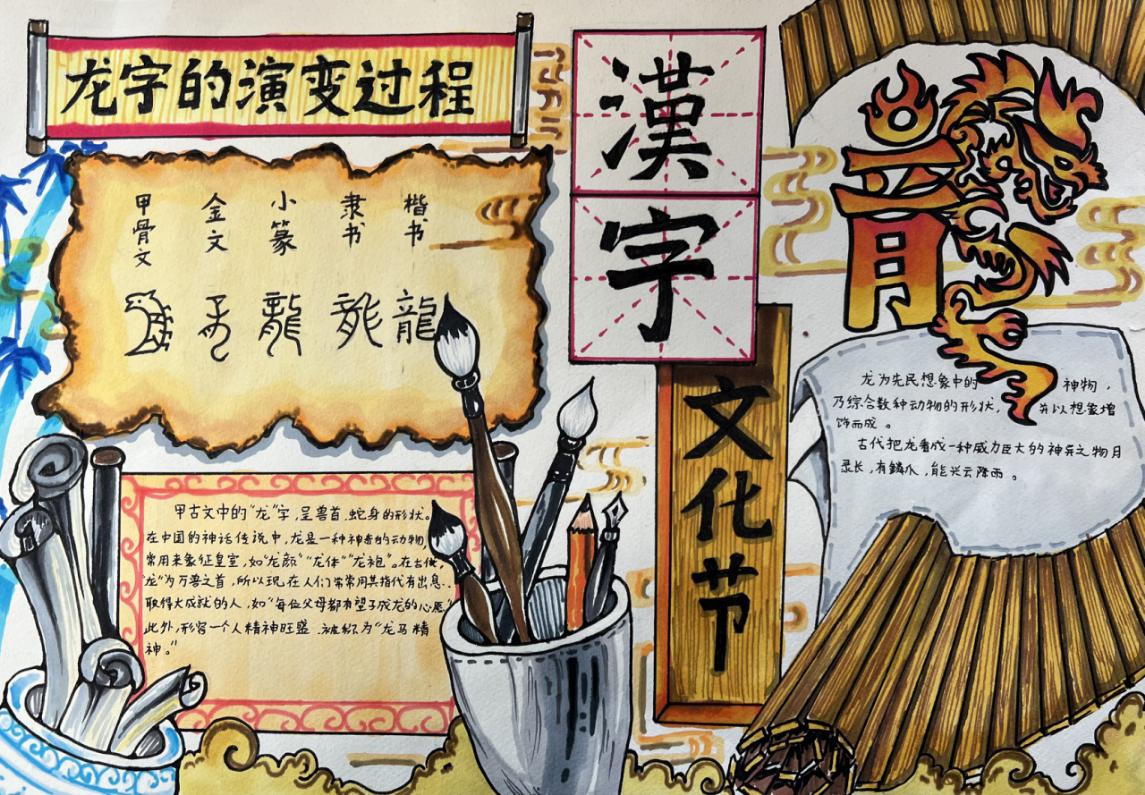 龙字的演变过程
漢
字
文化节
甲骨文 金文 小篆 隶书 楷书
龍
龍
龙为先民想象中的 神物，
乃综合数种动物的形状， 并以想象增
饰而成。
古代把龙看成一种威力巨大的神兵之物月
录长，有鳞爪，能兴云降雨。
甲古文中的“龙”字，呈兽首.蛇身的形状。
在中国的神话传说中，龙是一种神奇的动物
常用来象征皇室，如“龙颜”“龙体”“龙袍”。在古代，
龙”为万兽之首，所以现在人们常常用其指代有出息.
取得大成就的人，如“每位父母都有望子成龙的心愿”
此外，形容一个人精神旺盛.被称为“龙马精
神。”